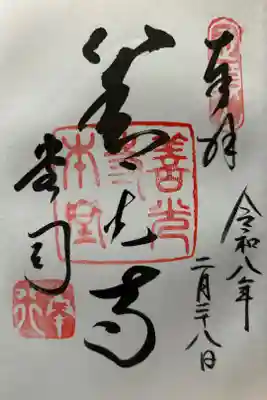 奉拝
善光寺
善光寺本堂
堂司
令和八年
二月二十八日